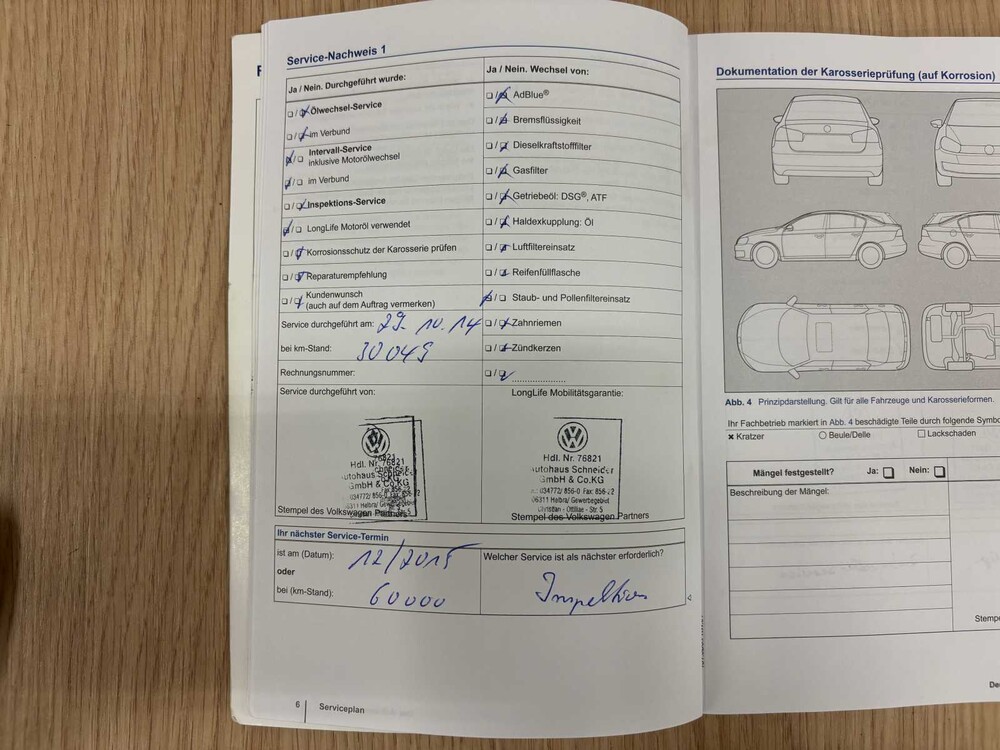 Service-Nachweis 1
Ja / Nein. Durchgeführt wurde:
Ölwechsel-Service
im Verbund
Intervall-Service
inklusive Motorölwechsel
im Verbund
Inspektions-Service
LongLife Motoröl verwendet
Korrosionsschutz der Karosserie prüfen
Reparaturempfehlung
Kundenwunsch
(auch auf dem Auftrag vermerken)
Service durchgeführt am: 29. 10. 14
bei km-Stand: 30049
Rechnungsnummer:
Service durchgeführt von:
Hdl. Nr. 76821
GmbH & Co.KG
Stempel des Volkswagen Partners
Ja / Nein. Wechsel von:
AdBlue®
Bremsflüssigkeit
Dieselkraftstofffilter
Gasfilter
Getriebeöl: DSG®, ATF
Haldexkupplung: Öl
Luftfiltereinsatz
Reifenfüllflasche
Staub- und Pollenfiltereinsatz
Zahnriemen
Zündkerzen
LongLife Mobilitätsgarantie:
Hdl. Nr. 76821
utohaus Schneider
GmbH & Co.KG
034772/ 856-0 Fax: 856-22
06311 Helbra/ Gewerbegebiet
Christian - Ottiliae - Str. 5
Stempel des Volkswagen Partners
Ihr nächster Service-Termin
ist am (Datum): 12/2015
oder
bei (km-Stand): 60000
Welcher Service ist als nächster erforderlich?
Inspektion
6 Serviceplan
Dokumentation der Karosserieprüfung (auf Korrosion)
Abb. 4 Prinzipdarstellung. Gilt für alle Fahrzeuge und Karosserieformen.
Ihr Fachbetrieb markiert in Abb. 4 beschädigte Teile durch folgende Symbo
Kratzer
Beule/Delle
Lackschaden
Mängel festgestellt? Ja: Nein:
Beschreibung der Mängel:
Stempe